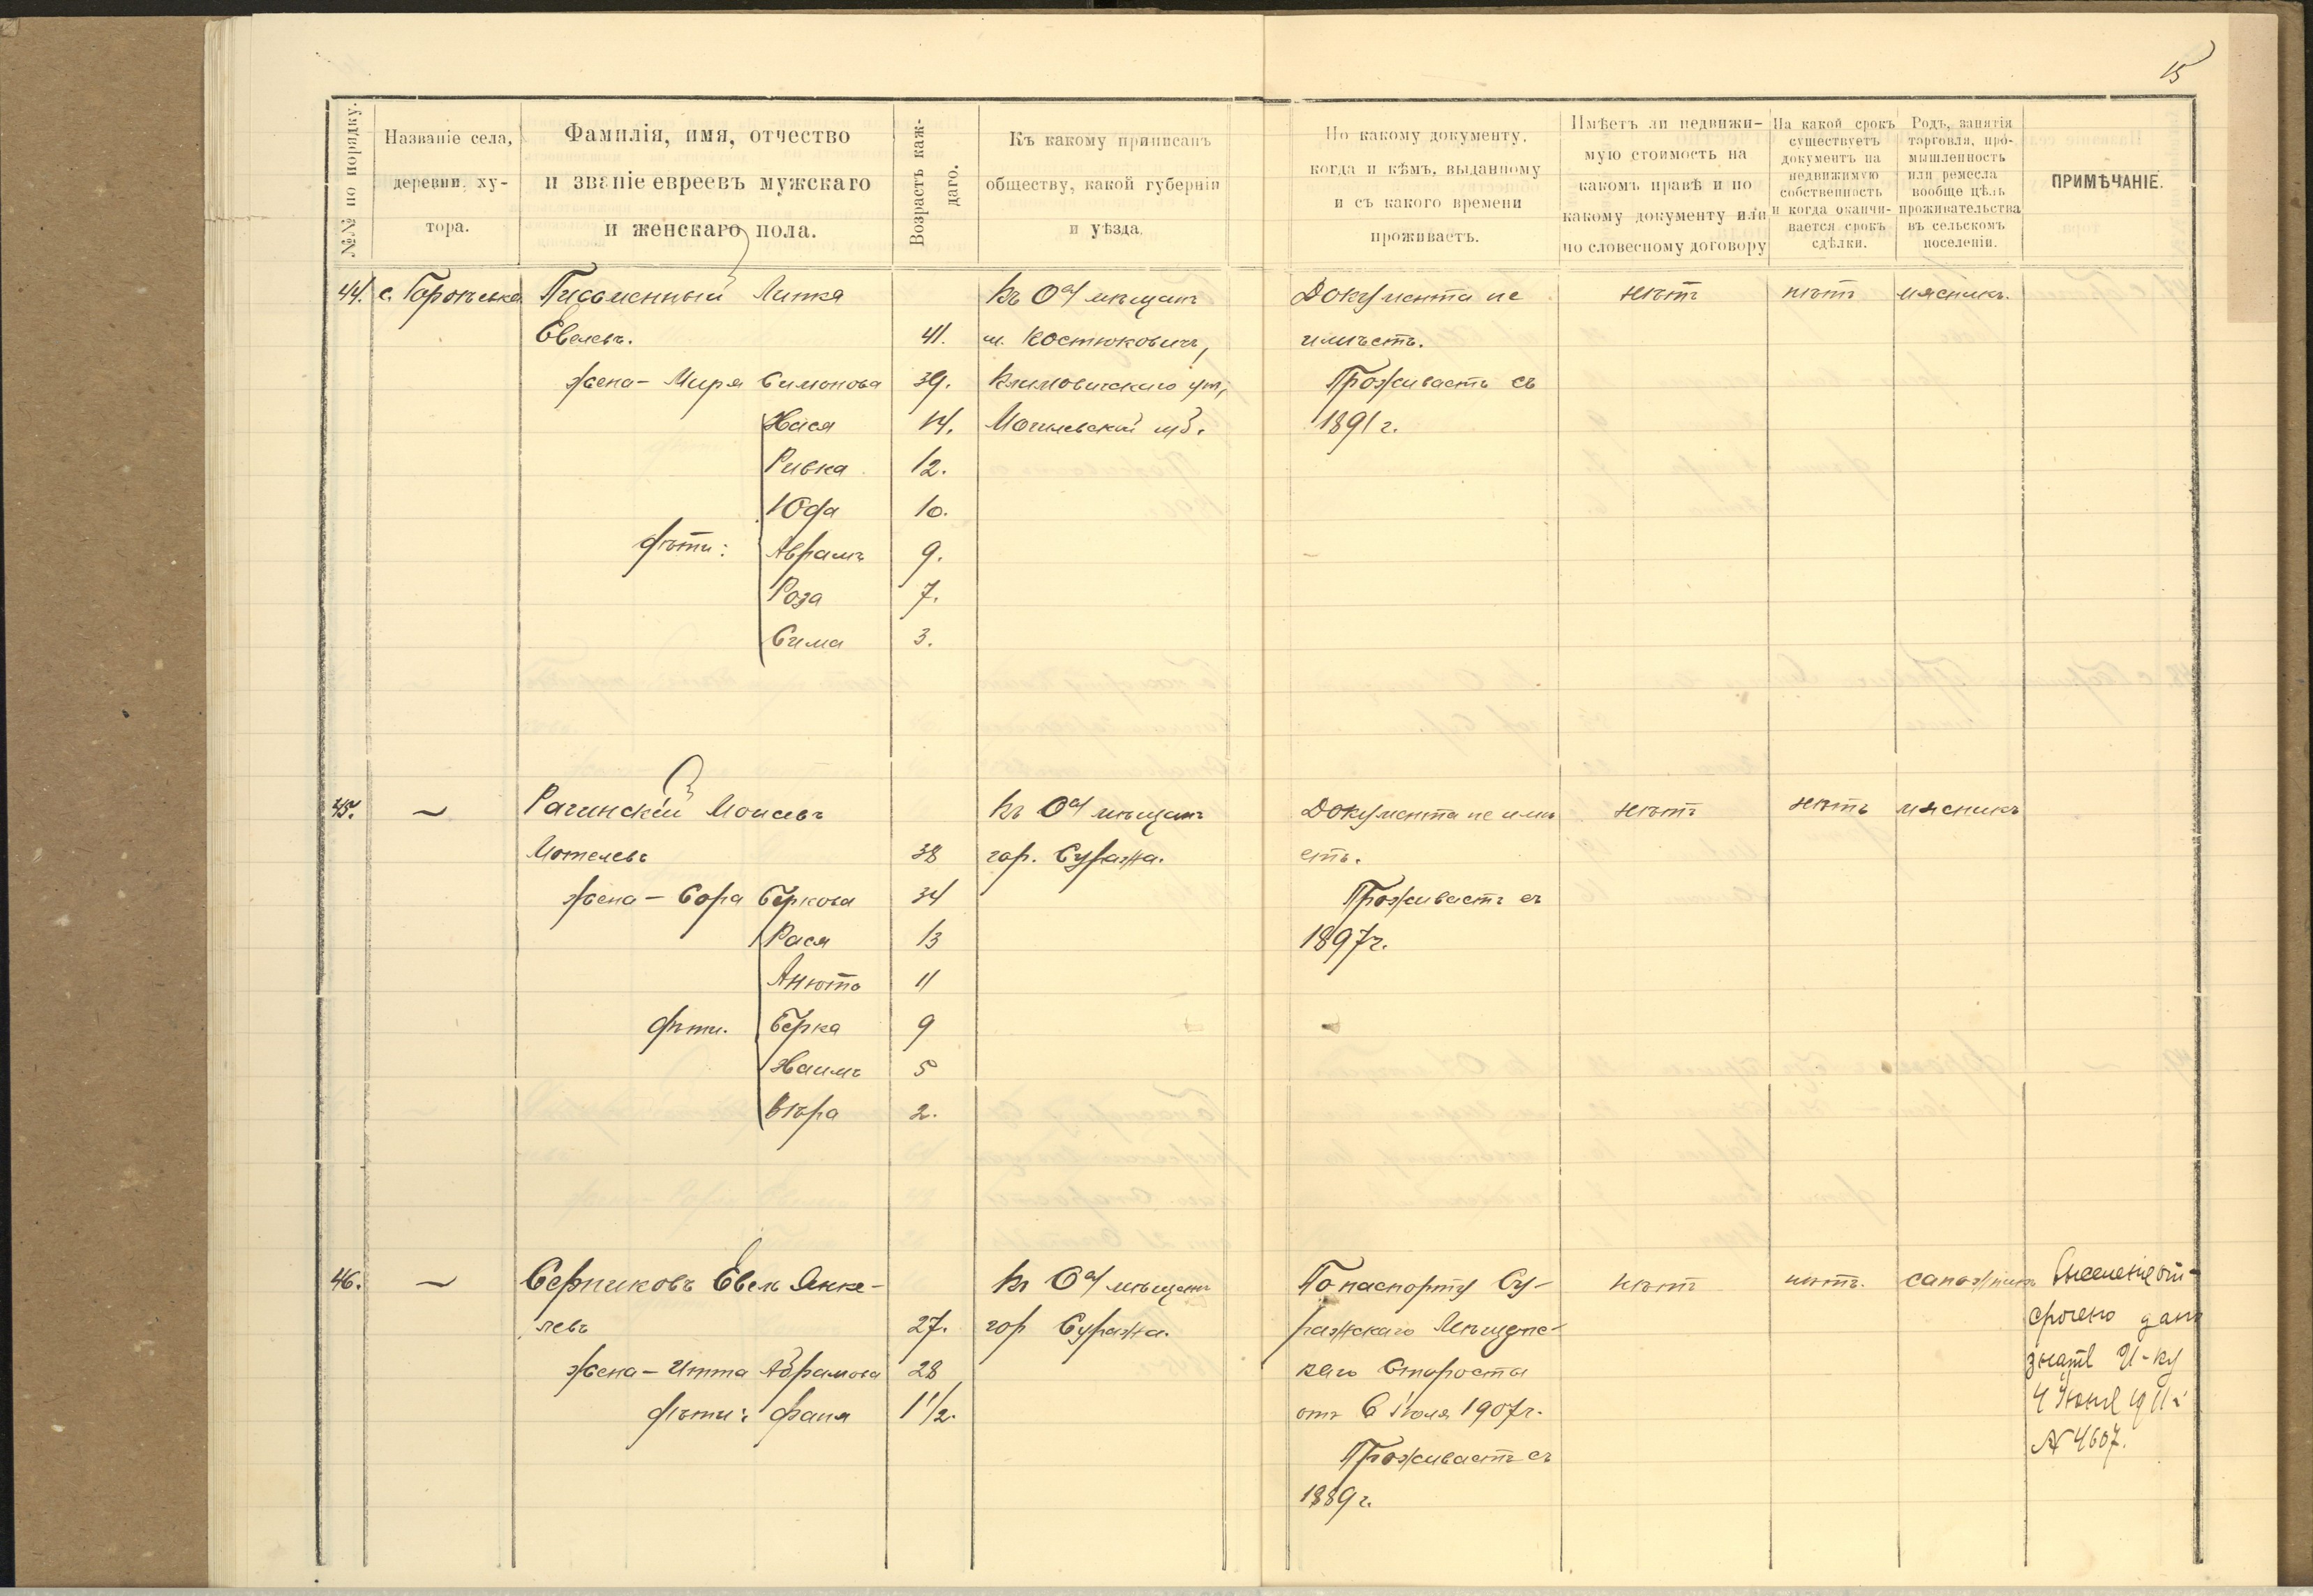 15
№№ по порядку.
Названіе села,
деревни, ху-
тора.
Фамилія, имя, отчество
и званіе евреевъ мужскаго
и женскаго пола.
Возрастъ каж-
даго.
Къ какому приписанъ
обществу, какой губерніи
и уѣзда.
По какому документу,
когда и кѣмъ, выданному
и съ какого времени
проживаетъ.
Имѣетъ ли недвижи-
мую стоимость на
какомъ правѣ и по
какому документу или
по словесному договору
На какой срокъ
существуетъ
документъ на
недвижимую
собственность
и когда оканчи-
вается срокъ
сдѣлки.
Родъ, занятія
торговля, про-
мышленность
или ремесла
вообще цѣль
проживательства
въ сельскомъ
поселеніи.
ПРИМѢЧАНІЕ.
44. с. Письменный Липка Къ Ову мѣщанъ Документа не нѣтъ нѣтъ мясникъ.
Евелевъ. 41. м. Костюковичъ, имѣетъ.
жена - Мира Симонова 39. Климовичскаго уѣз, Проживаетъ съ
Хася 14. Могилевской губ. 1891 г.
Ривка 12.
Юфа 10.
дѣти: Аврамъ 9.
Роза 7.
Сима 3.
45. ~ Рагинскій Моисей Къ Ову мѣщанъ Документа не имѣ нѣтъ нѣтъ мясникъ
Мотелевъ 38 гор. Суража. етъ.
жена - Сора Беркова 34 Проживаетъ съ
Рася 13 1897 г.
Анюта 11
дѣти. Берка 9
Хаимъ 5
Вѣра 2.
46. ~ Серпиковъ Евель Янке- Къ Ову мѣщанъ По паспорту Су- нѣтъ нѣтъ. сапожникъ Выселеніе от-
левъ 27. гор Суража. ражскаго Мѣщанс- срочено
жена - Итта Абрамова 28 каго Старосты И-ку
дѣти: Фаня 1 1/2. отъ 6 Іюля 1907 г. 4 Іюня 1911 г
Проживаетъ съ № 4607.
1889 г.